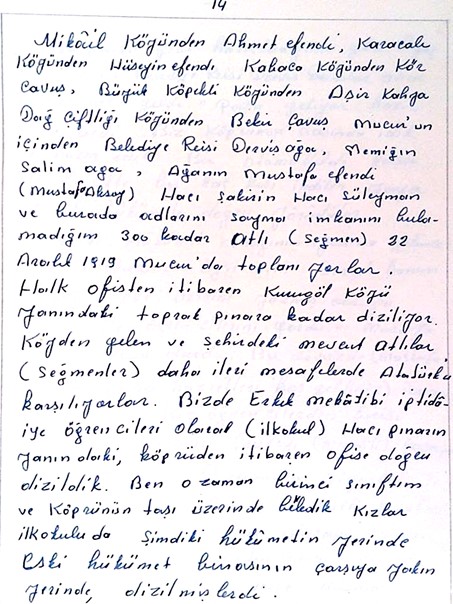 14
Mikâil Köyünden Ahmet efendi, Karacalı
Köyünden Hüseyin efendi Kahaca Köyünden Kör
Çavuş, Büyük Köpekli Köyünden Aşir Kahya
Dağ Çiftliği Köyünden Bekir Çavuş Mucur'un
içinden Belediye Reisi Derviş ağa, Memiğin
Salim ağa, Ağanın Mustafa efendi
(Mustafa Aksoy) Hacı Şakirin Hacı Süleyman
ve burada adlarını saymai imkanını bula-
madığım 300 kadar atlı (Seğmen) 22
Aralık 1919 Mucur'da toplanıyorlar.
Halk ofisten itibaren Kurugöl Köyü
yanındaki toprak pınara kadar diziliyor.
Köyden gelen ve şehirdeki mevcut atlılar
(Seğmenler) daha ileri mesafelerde Atatürk'ü
karşılıyorlar. Bizde Erkek mekâtibi iptidâ-
iye öğrencileri olarak (ilkokul) Hacı pınarın
yanındaki, köprüden itibaren ofise doğru
dizildik. Ben o zaman birinci sınıftım
ve Köprünün taşı üzerinde bekledik Kızlar
ilkokuluda Şimdiki hükümetin yerinde
Eski hükümet binasının çarşıya yakın
yerinde, dizilmişlerdi.